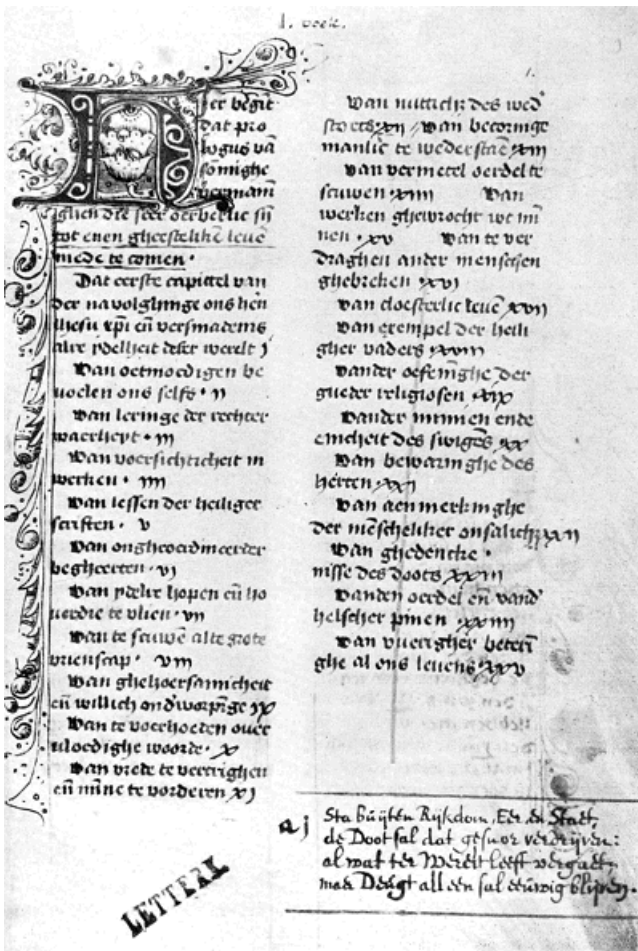 1. boek.
Hier begīt
dat pro
logus vā
sōmighe
vermanī
ghen die seer oerberlic sij
tot enen gheesteliken leuē
mede te comen ·
Dat eerste capittel van
der navolghinge ons heren
ihesu xpī eñ versmadenis
alre ydelheit deser werelt j
Van oetmoedigen be
uoelen ons selfs · ii
Van leringe der rechter
waerheyt · iii
Van voersichticheit in
werken · iiii
Van lessen der heiliger
scriften · v
Van ongheordineerder
begheerten · vi
Van ydelre hopen eñ ho
uerdie te vlien · vii
Van te scuwē alte grote
vrienscap · viii
Van ghehoersamicheit
eñ willich ond'worpēge ix
Van te voerhoeden over
uloedighe woorde · x
Van vrede te vercrighen
eñ mīne te vorderen xi
Van nutticheit des wed'
stoets xii Van becoringe
manlic te wederstaē xiii
Van vermetel oerdel te
scuwen · xiiii Van
werken ghewrocht wt mī
nen · xv Van te ver
draghen ander menschen
ghebreken xvi
Van cloesterlic leuē xvii
Van exempel der heili
gher vaders xviii
Vander oefeninghe der
gueder religiosen xix
Vander minnen ende
enicheit des swigēs xx
Van bewaringhe des
herten xxi
Van aenmerkinghe
der mēscheliker onsalich xxii
Van ghedencke ·
nisse des doots xxiii
Vanden oerdel eñ vand'
helscher pinen · xxiiii
Van vuerigher beterī
ghe al ons levens xxv
Sta buÿten Rÿkdom, Eer, en Staet,
de Doot sal dat gesnor verdrÿven:
al wat ter Werelt leeft vergaet,
maer Deugt alleen sal eeuwig blÿven.
LETTERK